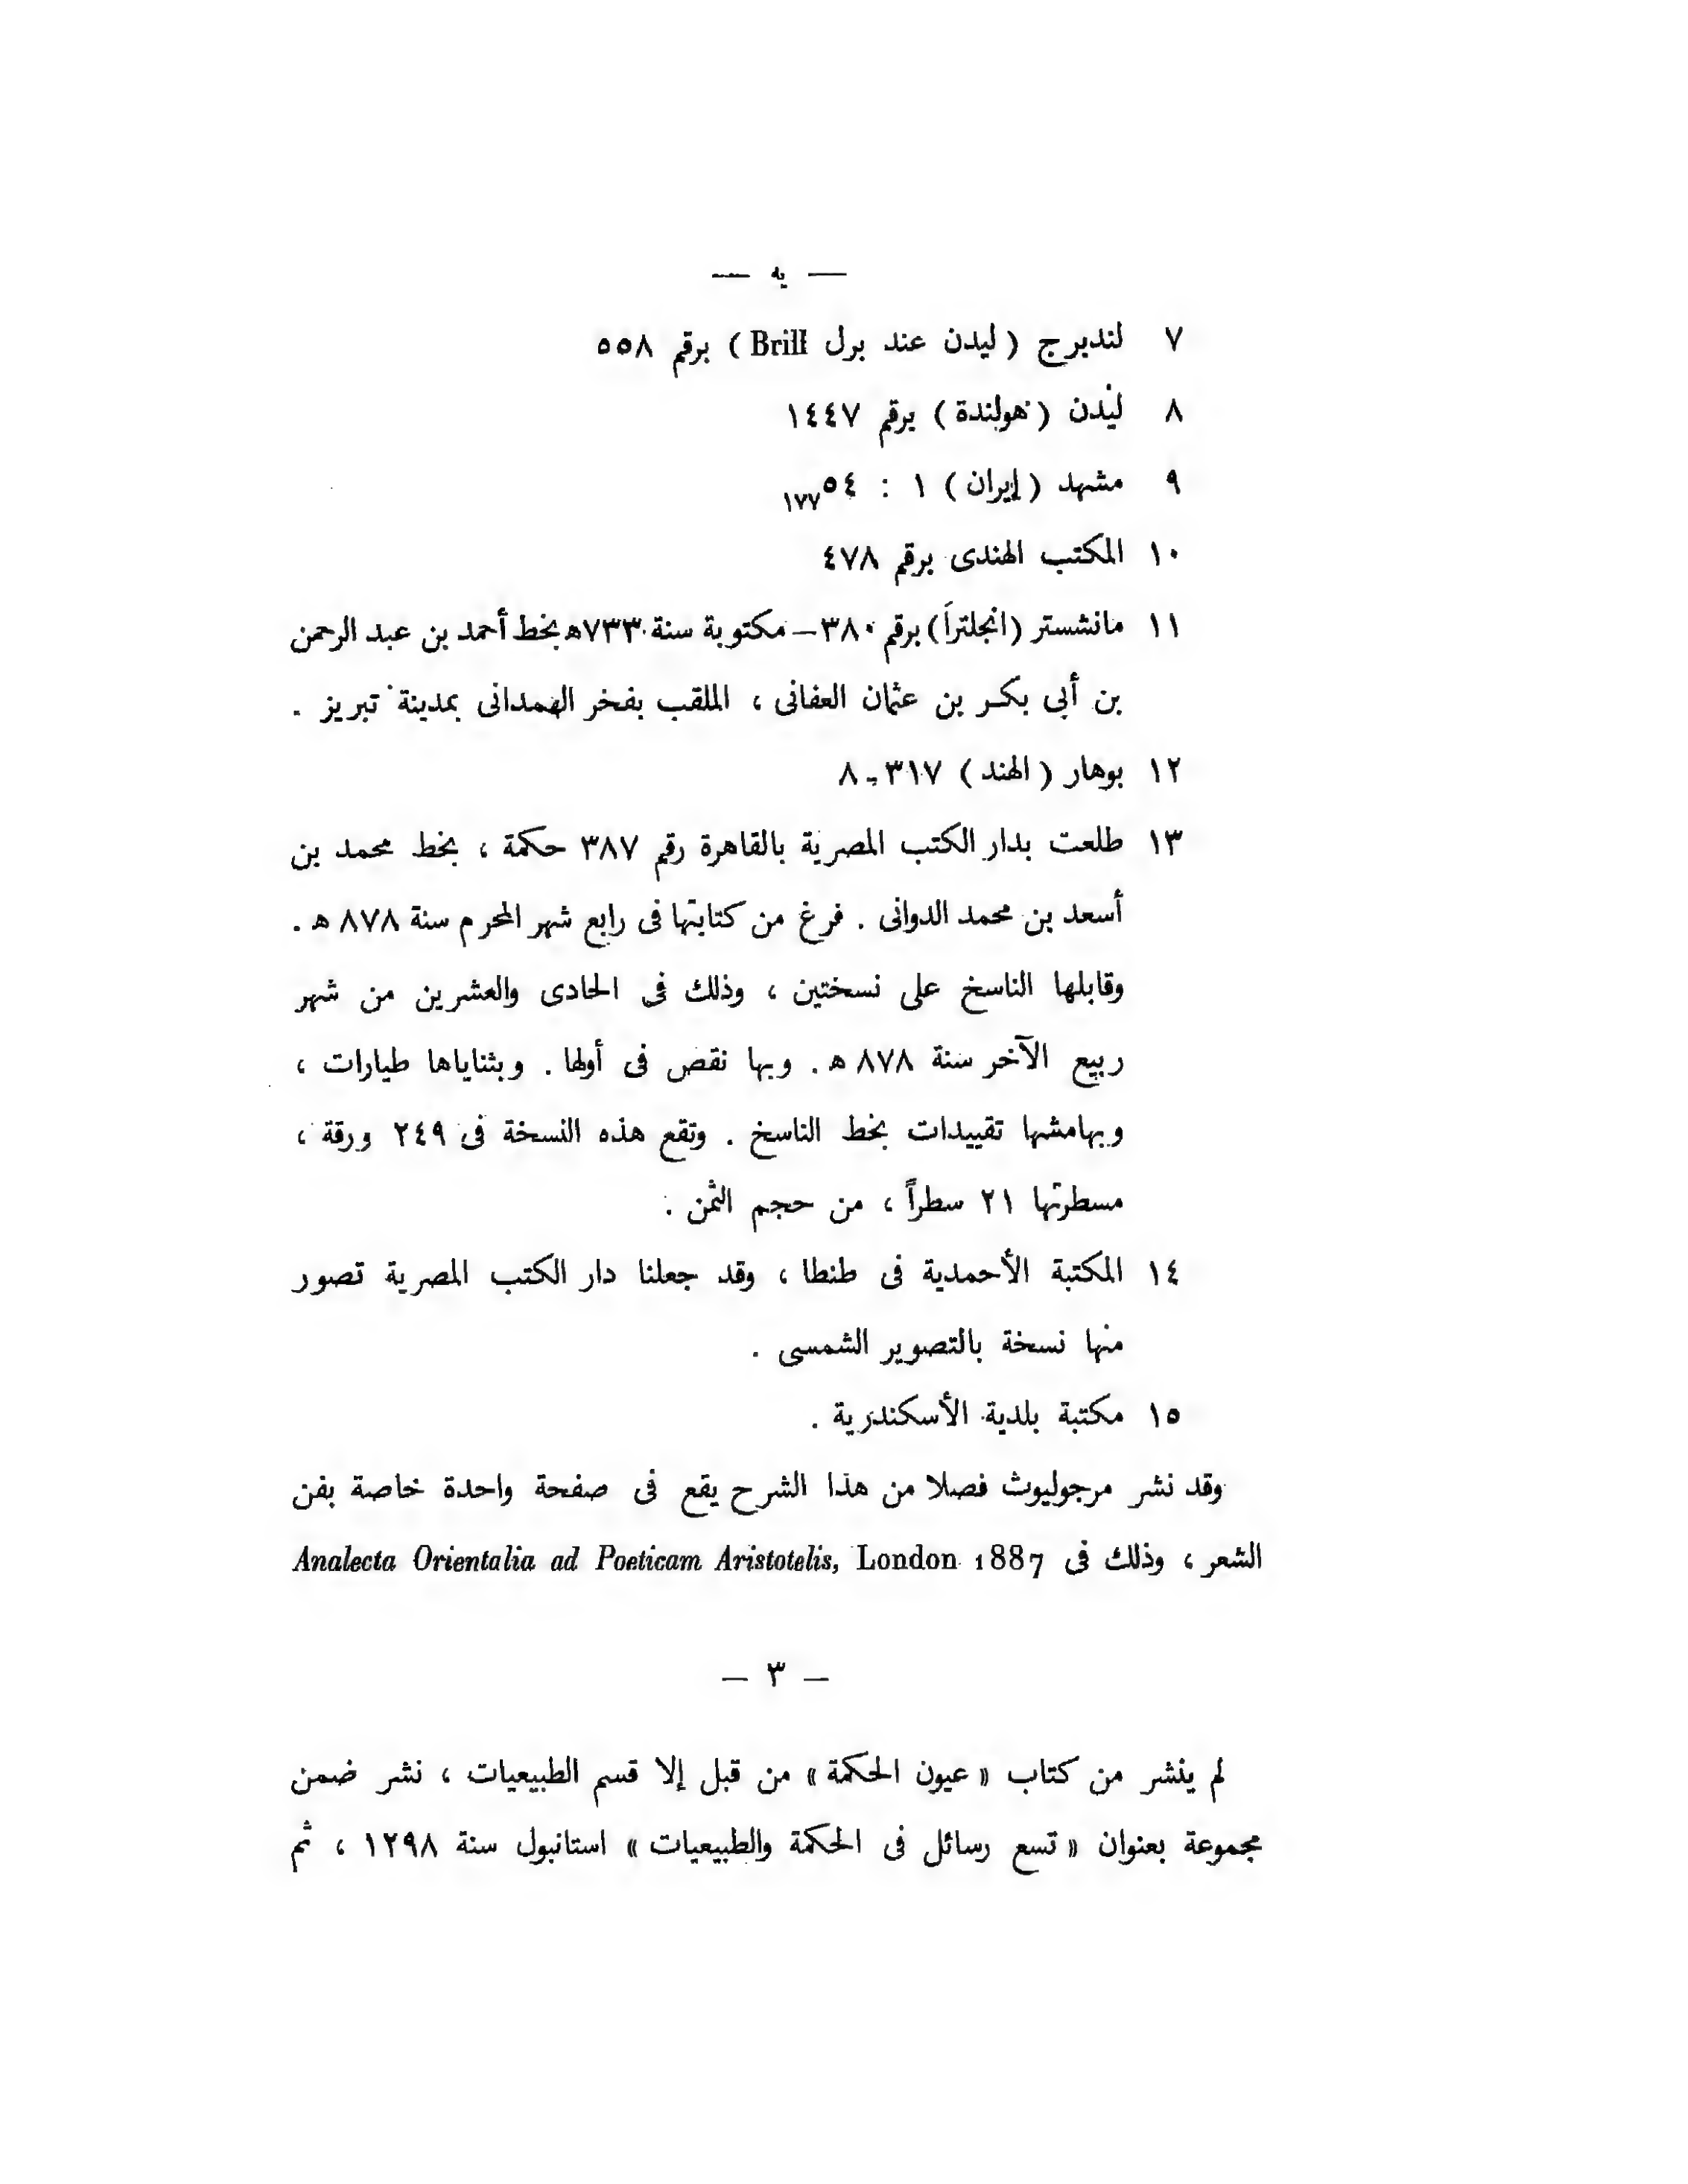 — يه —
٧ لندبرج ( ليدن عند برل Brill ) برقم ٥٥٨
٨ ليدن ( هولندة ) برقم ١٤٤٧
٩ مشهد ( إيران ) ١ : ٥٤ ١٧٧
١٠ المكتب الهندى برقم ٤٧٨
١١ مانشستر (انجلترا) برقم ٣٨٠ – مكتوبة سنة ٧٣٣ه بخط أحمد بن عبد الرحمن
بن أبى بكر بن عثمان العفانى ، الملقب بفخر الهمدانى بمدينة تبريز .
١٢ بوهار ( الهند ) ٣١٧ - ٨
١٣ طلعت بدار الكتب المصرية بالقاهرة رقم ٣٨٧ حكمة ، بخط محمد بن
أسعد بن محمد الدوانى . فرغ من كتابتها فى رابع شهر المحرم سنة ٨٧٨ ه .
وقابلها الناسخ على نسختين ، وذلك فى الحادى والعشرين من شهر
ربيع الآخر سنة ٨٧٨ ه . وبها نقص فى أولها . وبثناياها طيارات ،
وبهامشها تقييدات بخط الناسخ . وتقع هذه النسخة فى ٢٤٩ ورقة ،
مسطرتها ٢١ سطراً ، من حجم الثمن .
١٤ المكتبة الأحمدية فى طنطا ، وقد جعلنا دار الكتب المصرية تصور
منها نسخة بالتصوير الشمسى .
١٥ مكتبة بلدية الأسكندرية .
وقد نشر مرجوليوث فصلا من هذا الشرح يقع فى صفحة واحدة خاصة بفن
الشعر ، وذلك فى Analecta Orientalia ad Poeticam Aristotelis, London 1887
– ٣ –
لم ينشر من كتاب « عيون الحكمة » من قبل إلا قسم الطبيعيات ، نشر ضمن
مجموعة بعنوان « تسع رسائل فى الحكمة والطبيعيات » استانبول سنة ١٢٩٨ ، ثم